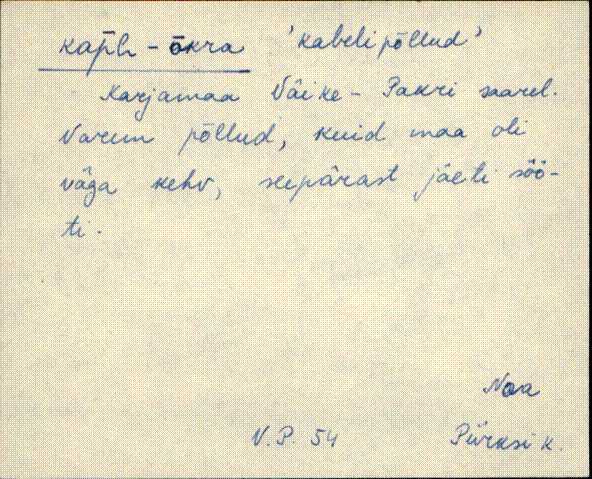 kap̄l - ōkra 'kabelipõllud'
Karjamaa Väike-Pakri saarel.
Varem põllud, kuid maa oli
väga kehv, seepärast jäeti söö-
ti.
Noa
V.P. 54 Pürksi k.